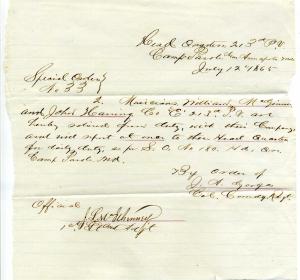 Head Quarters 213th P.V.
Camp Parole Near Annapolis Md
July 12th 1865
Special Orders
No. 33
2. Musicians William McGinnis
and John Haning Co "E" 213th P.V. are
hereby relieved from duty with their Company
and will report at once to these Head Quarters
for daily duty, as per S.O. No 180. Hd. Qrs.
Camp Parole Md.
By Order of
J. A. Gorgas
Col. Comdg Regt.
Official
1st Lieut & Adjt